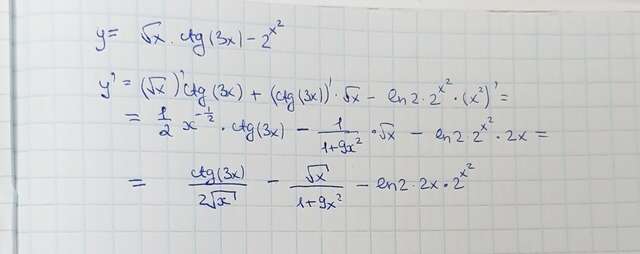 y = √x · ctg(3x) − 2^x^2
y' = (√x)' ctg(3x) + (ctg(3x))' · √x − ln2 · 2^x^2 · (x^2)' =
= 1/2 x^-1/2 · ctg(3x) − 1/(1+9x^2) · √x − ln2 · 2^x^2 · 2x =
= ctg(3x)/(2√x) − √x/(1+9x^2) − ln2 · 2x · 2^x^2